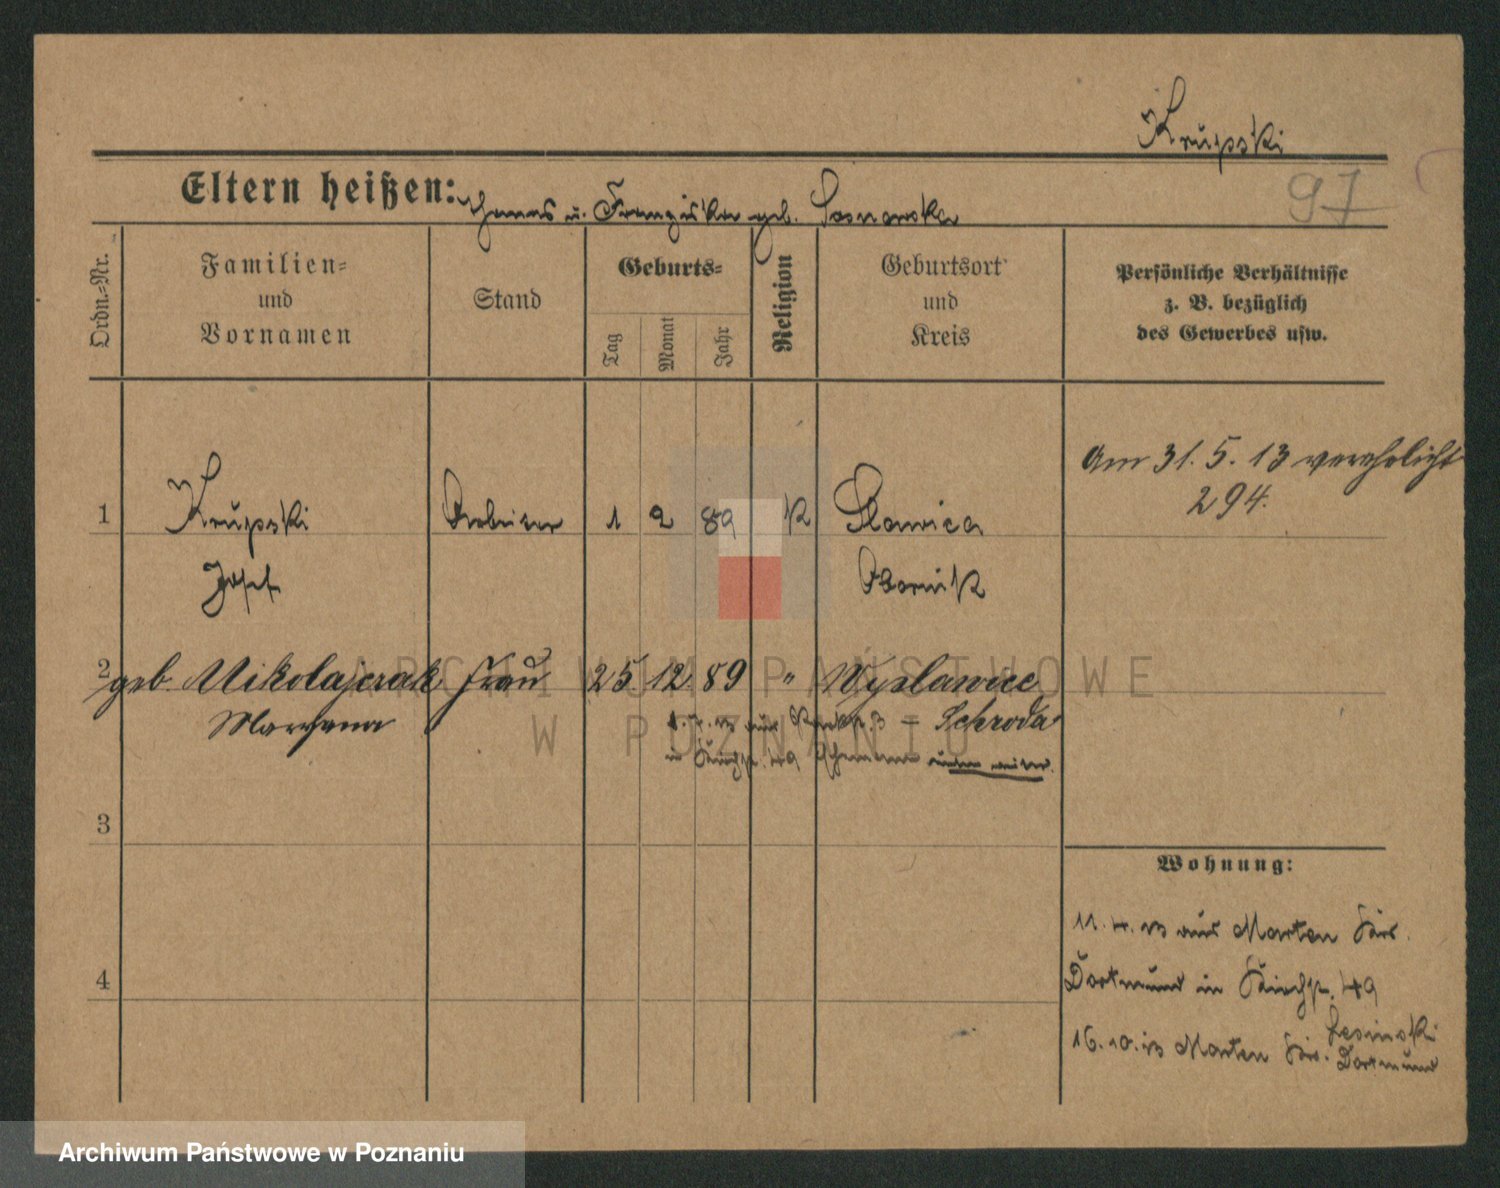 Krupski
Eltern heißen: Thomas u. Franziska geb. Sosnowska
97
Ordn.-Nr.
Familien-
und
Vornamen
Stand
Geburts-
Tag
Monat
Jahr
Religion
Geburtsort
und
Kreis
Persönliche Verhältnisse
z. B. bezüglich
des Gewerbes usw.
Am 31. 5. 13 verehelicht
294.
1 Krupski Arbeiter 1 2 89 K Slawica
Josef Obornik
2 geb. Mikolajczak Frau 25 12 89 " Wyslawice
Maryanna Schroda
in 49
3
Wohnung:
11. 4. 13 aus Marten Kr.
Dortmund in 49
4
16. 10. 13 Marten Kr. Dortmund
Lesinski
ARCHIWUM PAŃSTWOWE
W POZNANIU
Archiwum Państwowe w Poznaniu